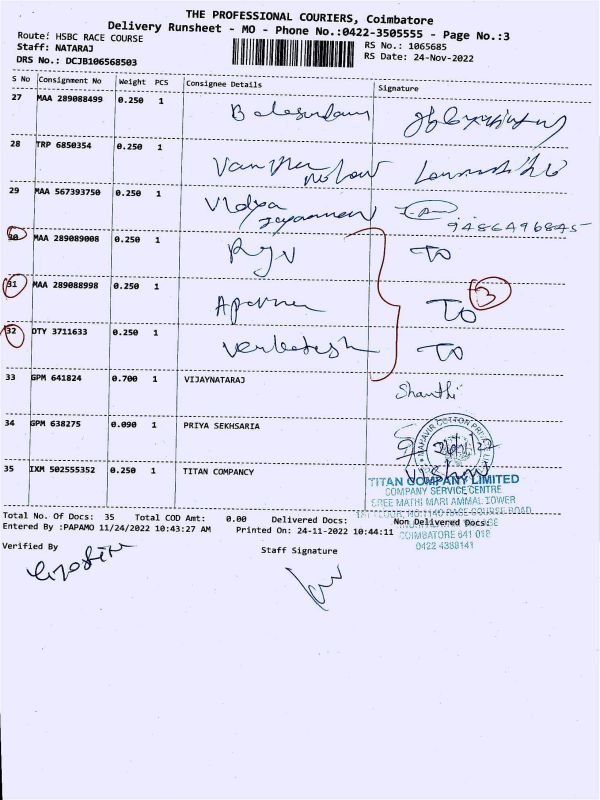 THE PROFESSIONAL COURIERS, Coimbatore
Delivery Runsheet - MO - Phone No.:0422-3505555 - Page No.:3
Route: HSBC RACE COURSE
RS No.: 1065685
Staff: NATARAJ
RS Date: 24-Nov-2022
DRS No.: DCJB106568503
S No Consignment No Weight PCS Consignee Details Signature
27 MAA 289088499 0.250 1
28 TRP 6850354 0.250 1
29 MAA 567393750 0.250 1 Vidya
9486496845
30 MAA 289089008 0.250 1 TO
31 MAA 289088998 0.250 1 Aparna TO 3
32 DTY 3711633 0.250 1 Venkatesh TO
33 GPM 641824 0.700 1 VIJAYNATARAJ Shanthi
34 GPM 638275 0.090 1 PRIYA SEKHSARIA
35 IXM 502555352 0.250 1 TITAN COMPANCY
TITAN COMPANY LIMITED
COMPANY SERVICE CENTRE
SREE MATHI MARI AMMAL TOWER
RACE COURSE ROAD
COIMBATORE 641 018
0422 4368141
Total No. Of Docs: 35 Total COD Amt: 0.00 Delivered Docs: Non Delivered Docs:
Entered By :PAPAMO 11/24/2022 10:43:27 AM Printed On: 24-11-2022 10:44:11
Verified By
Staff Signature